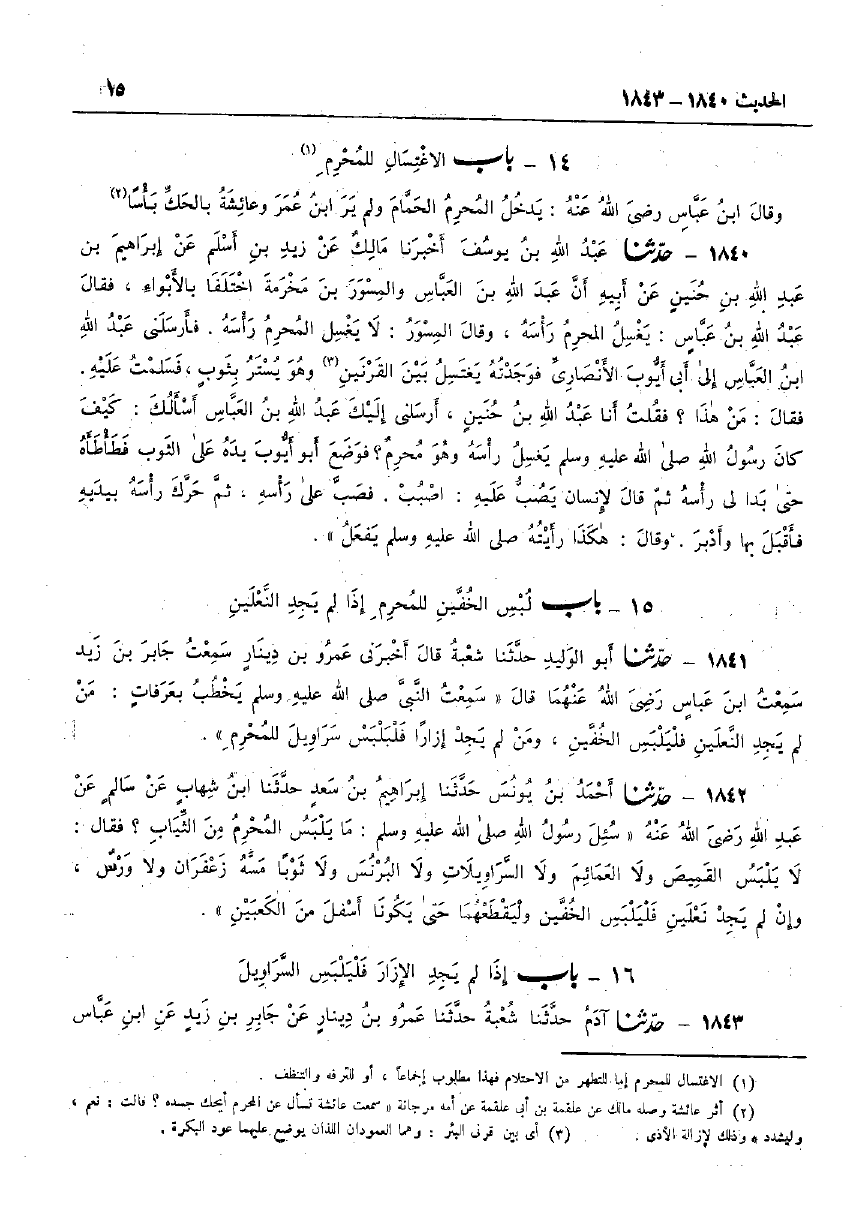 الحديث ١٨٤٠ - ١٨٤٣ ١٥
١٤ - باب الاغْتِسَالِ للمُحْرِمِ (١)
وقالَ ابنُ عَبَّاسٍ رضىَ اللهُ عَنْهُ : يَدخُلُ المحرِمُ الحَمَّامَ ولم يَرَ ابنُ عُمَرَ وعائِشَةُ بالحَكِّ بَأْسًا (٢)
١٨٤٠ - حدّثنا عَبْدُ اللهِ بنُ يوسُفَ أَخْبرَنا مَالِكٌ عَنْ زيدِ بنِ أَسْلَم عَنْ إبرَاهِيمَ بن
عَبدِ اللهِ بنِ حُنَينٍ عَنْ أَبيهِ أَنَّ عَبدَ اللهِ بنَ العَبَّاسِ والمِسْوَرَ بنَ مَخْرمَةَ اخْتَلَفَا بالأَبْواءِ ، فقالَ
عَبْدُ اللهِ بنُ عَبَّاسٍ : يَغْسِلُ المحرمُ رَأْسَهُ ، وقالَ المِسْوَرُ : لَا يَغْسِلُ المُحرِمُ رَأْسَهُ . فأَرسَلَنى عَبْدُ اللهِ
ابنُ العَبَّاسِ إلىٰ أَبى أَيُّوبَ الأَنْصَارِىِّ فوَجَدْتُهُ يَغتَسِلُ بَيْنَ القَرْنَينِ (٣) وهُوَ يُسْتَرُ بِثَوبٍ ، فَسَلمْتُ عَلَيْهِ .
فقالَ : مَنْ هٰذَا ؟ فقُلتُ أنا عَبْدُ اللهِ بنُ حُنَينٍ ، أرسَلنى إلَيْكَ عَبدُ اللهِ بنُ العَبَّاسِ أَسْأَلُكَ : كَيْفَ
كانَ رسُولُ اللهِ صلىٰ الله عليهِ وسلم يَغسِلُ رأْسَهُ وهُوَ مُحرِمٌ ؟ فوَضَعَ أبو أَيُّوبَ يدَهُ عَلىٰ الثوبِ فَطَأْطَأَهُ
حتىٰ بَدا لى رأسهُ ثمّ قالَ لإنسانٍ يَصُبُّ عَلَيهِ : اصْبُبْ . فصَبَّ علىٰ رَأْسهِ ، ثمَّ حَرَّكَ رأسَهُ بيدَيهِ
فأَقْبَلَ بها وأَدْبرَ . وقالَ : هٰكَذَا رأَيْتُهُ صلى الله عليهِ وسلم يَفعَلُ » .
١٥ - باب لُبْسِ الخُفَّينِ للمُحرِمِ إذَا لم يَجِدِ النَّعْلَينِ
١٨٤١ - حدّثنا أَبو الوَليدِ حدَّثَنا شعْبةُ قالَ أخْبرَنى عَمرُو بن دِينَارٍ سَمِعْتُ جَابرَ بنَ زَيد
سَمِعْتُ ابنَ عَباسٍ رَضِىَ اللهُ عَنْهُمَا قالَ « سَمِعْتُ النَّبىَّ صلى الله عليهِ وسلم يَخْطُبُ بعَرَفاتٍ : مَنْ
لم يَجِدِ النَّعلَينِ فليَلبَسِ الخُفَّينِ ، ومَنْ لم يَجِدْ إزارًا فَليَلبَسْ سَرَاوِيلَ للمُحْرِمِ » .
١٨٤٢ - حدّثنا أَحْمَدُ بنُ يُونُسَ حَدَّثَنا إبرَاهِيمُ بنُ سَعدٍ حدَّثَنا ابنُ شِهابٍ عَنْ سَالمٍ عَنْ
عَبدِ اللهِ رَضىَ اللهُ عَنْهُ « سُئِلَ رسُولُ اللهِ صلىٰ الله عليهِ وسلم : مَا يَلْبَسُ المُحْرِمُ مِنَ الثِّيَابِ ؟ فقال :
لَا يَلْبَسُ القَمِيصَ ولَا العَمَائِمَ ولَا السَّرَاوِيلَاتِ ولَا البُرْنُسَ ولَا ثَوْبًا مَسَّهُ زَعْفَرَان ولا وَرْسٌ ،
وإنْ لم يَجِدْ نَعْلَينِ فَليَلبَسِ الخُفَّينِ وليَقْطَعْهُمَا حَتىٰ يَكُونَا أَسْفلَ منَ الكَعبَيْنِ » .
١٦ - باب إذَا لم يَجِدِ الإزَارَ فَليَلْبَسِ السَّرَاويلَ
١٨٤٣ - حدّثنا آدَمُ حدَّثَنا شُعْبةُ حدَّثَنا عَمرُو بنُ دِينارٍ عَنْ جَابِرِ بنِ زَيدٍ عَنِ ابنِ عَبَّاس
(١) الاغتسال للمحرم إما للتطهر من الاحتلام فهذا مطلوب إجماعاً ، أو للترفه والتنظف .
(٢) أثر عائشة وصله مالك عن علقمة بن أبى علقمة عن أمه مرجانة « سمعت عائشة تسأل عن المحرم أيحك جسده ؟ قالت : نعم ،
وليشدد » وذلك لإزالة الأذى . (٣) أى بين قرنى البئر : وهما العمودان اللذان يوضع عليهما عود البكرة .